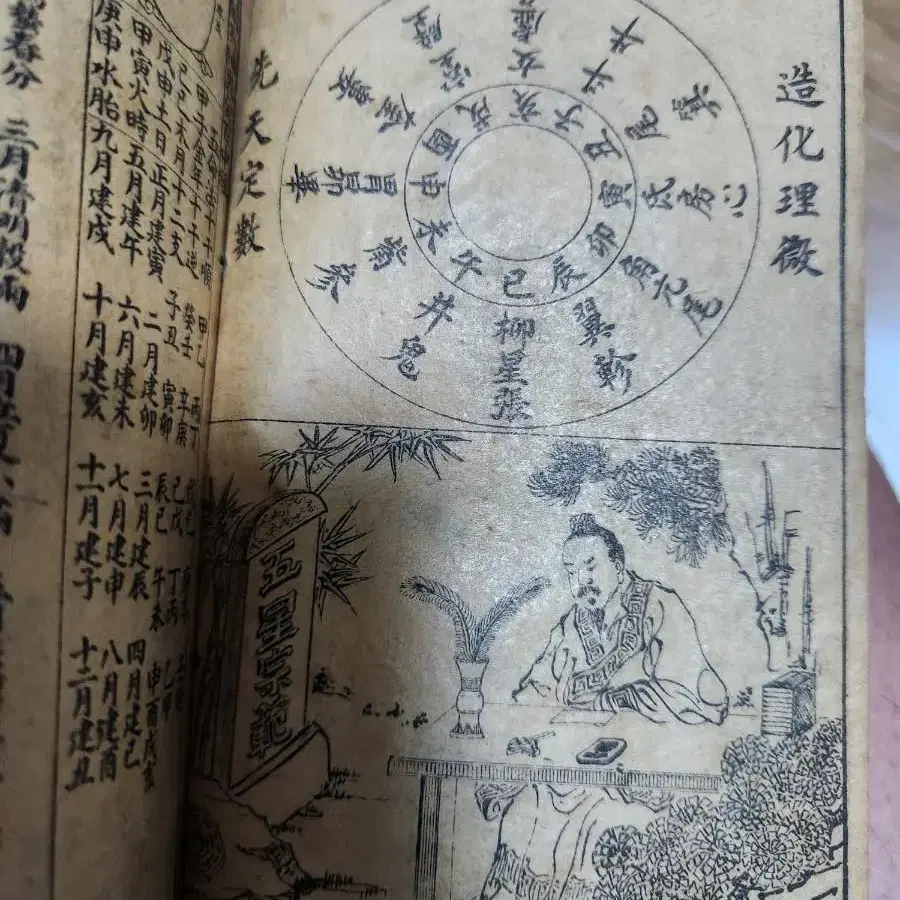 造化理微
子丑寅卯辰巳午未申酉戌亥
女虛
斗牛
尾箕
氐房心
角亢尾
翼軫
柳星張
井鬼
觜參
胃昴畢
奎婁
室壁
先天定數
五星宗範
十干順 甲乙 丙丁 戊己
甲子金年十干逆 癸壬 辛庚 己戊 丁丙 乙甲
己巳木月十二支 子丑 寅卯 辰巳 午未 申酉戌亥
戊申土日正月建寅 二月建卯 三月建辰 四月建巳
甲寅火時五月建午 六月建未 七月建申 八月建酉
庚申水胎九月建戌 十月建亥 十一月建子 十二月建丑
春分 三月清明穀雨 四月立夏小滿